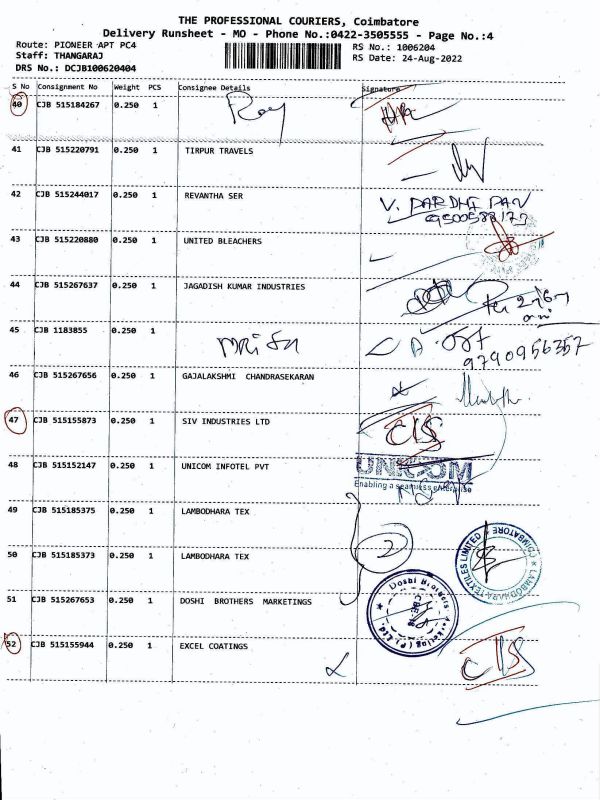 THE PROFESSIONAL COURIERS, Coimbatore
Delivery Runsheet - MO - Phone No.:0422-3505555 - Page No.:4
Route: PIONEER APT PC4
Staff: THANGARAJ
DRS No.: DCJB100620404
RS No.: 1006204
RS Date: 24-Aug-2022
S No Consignment No Weight PCS Consignee Details Signature
40 CJB 515184267 0.250 1 Roy
41 CJB 515220791 0.250 1 TIRPUR TRAVELS
42 CJB 515244017 0.250 1 REVANTHA SER V. PARDHI PAN
9500588173
43 CJB 515220880 0.250 1 UNITED BLEACHERS
44 CJB 515267637 0.250 1 JAGADISH KUMAR INDUSTRIES
45 CJB 1183855 0.250 1
9790956357
46 CJB 515267656 0.250 1 GAJALAKSHMI CHANDRASEKARAN
47 CJB 515155873 0.250 1 SIV INDUSTRIES LTD CIS
48 CJB 515152147 0.250 1 UNICOM INFOTEL PVT UNICOM
Enabling a seamless enterprise
49 CJB 515185375 0.250 1 LAMBODHARA TEX
2
50 CJB 515185373 0.250 1 LAMBODHARA TEX LAMBODHARA TEXTILES LIMITED COIMBATORE
51 CJB 515267653 0.250 1 DOSHI BROTHERS MARKETINGS
52 CJB 515155944 0.250 1 EXCEL COATINGS CIS